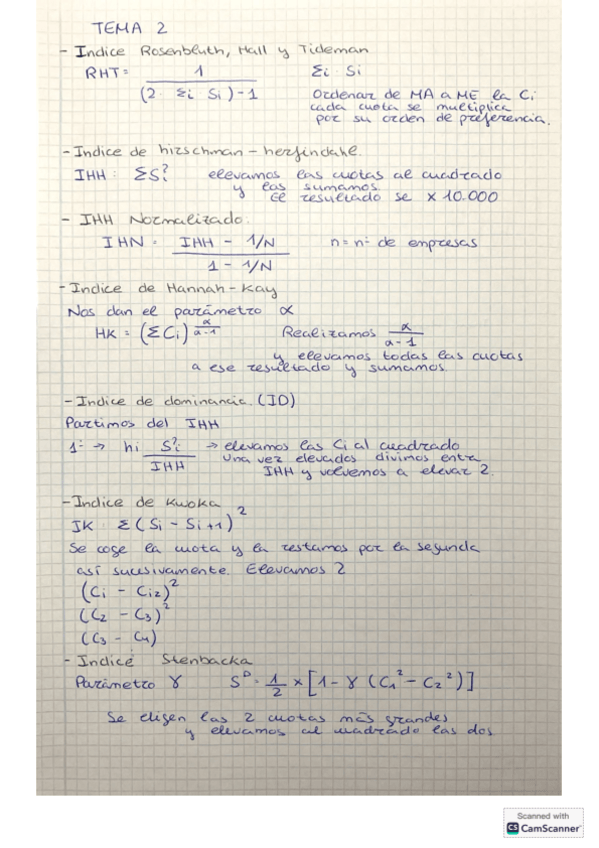 TEMA 2
- Indice Rosenbluth, Hall y Tideman
RHT = 1 / (2 · Σi Si) - 1    Σi · Si
Ordenar de MA a ME la Ci
cada cuota se multiplica
por su orden de preferencia.
- Indice de hirschman - herfindahl.
IHH: ΣSi²    elevamos las cuotas al cuadrado
y las sumamos.
El resultado se x 10.000
- IHH Normalizado.
IHN = IHH - 1/N / 1 - 1/N    n = nº de empresas
- Indice de Hannah - Kay
Nos dan el parámetro α
HK = (ΣCi) α/a-1    Realizamos α/a-1
y elevamos todas las cuotas
a ese resultado y sumamos.
- Indice de dominancia. (ID)
Partimos del IHH
1º → hi Si²/IHH → elevamos las Ci al cuadrado
una vez elevados divimos entre
IHH y volvemos a elevar 2.
- Indice de Kwoka
IK: Σ(Si - Si+1)²
Se coge la cuota y la restamos por la segunda
así sucesivamente. Elevamos 2
(Ci - Ci2)²
(C2 - C3)²
(C3 - C4)
- Indice Stenbacka
Parámetro γ    Sᴰ = 1/2 × [1 - γ (C1² - C2²)]
Se eligen las 2 cuotas más grandes
y elevamos al cuadrado las dos
Scanned with
CS CamScanner